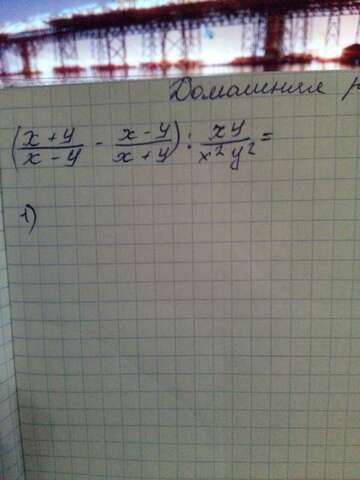 Домашняя р
(x+y/x-y - x-y/x+y) : xy/x²y² =
1)